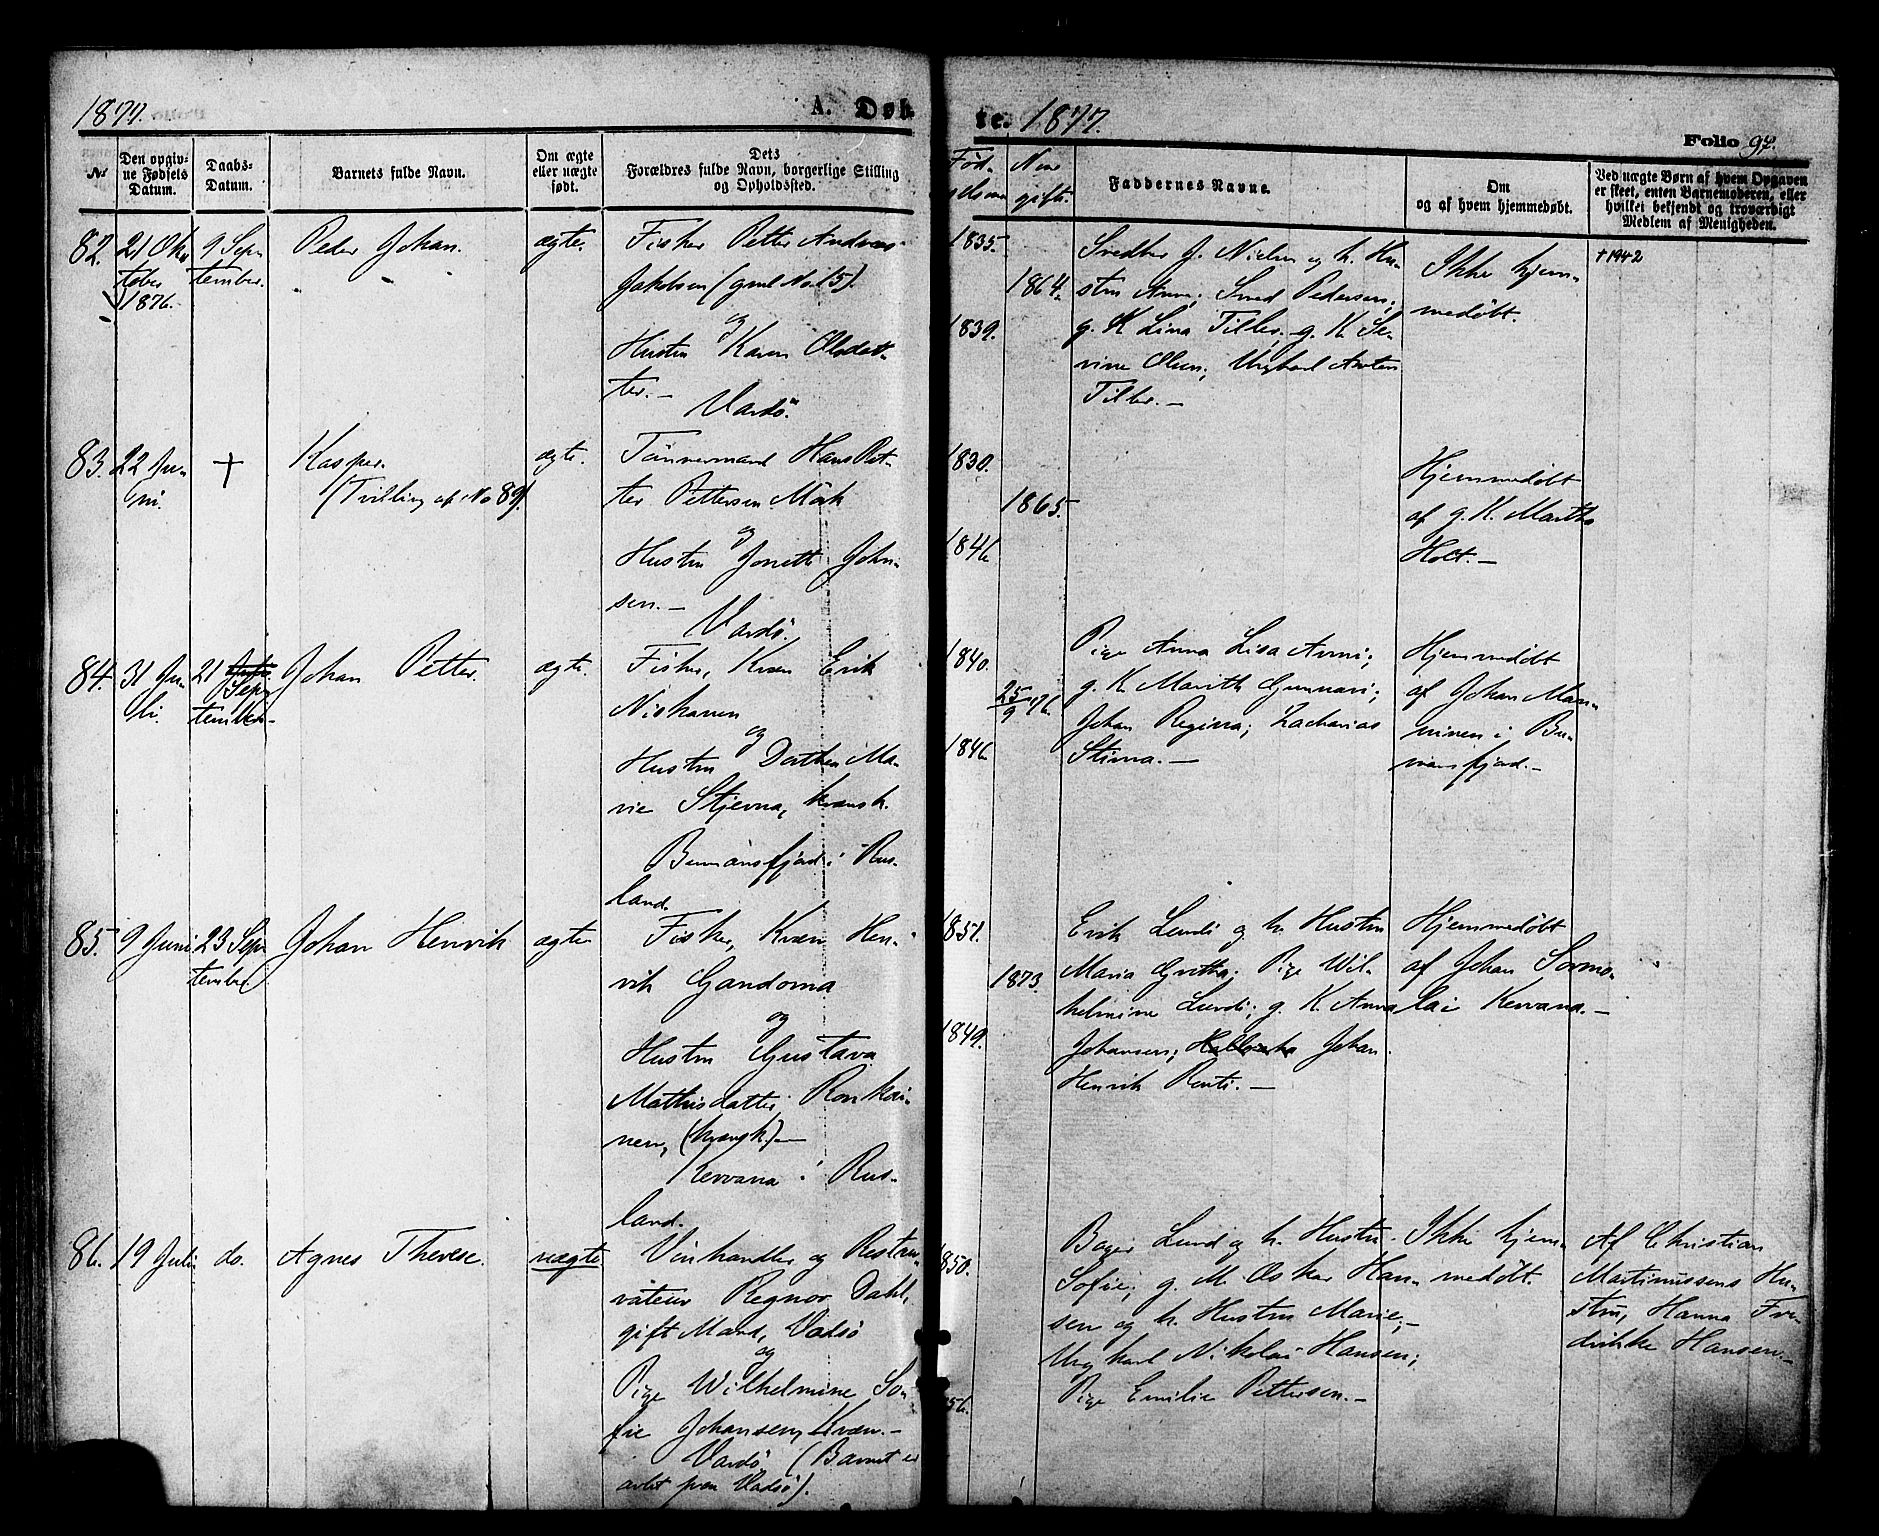 1877.
A. Døb
te. 1877.
Folio 92.
No
Den opgiv-
ne Fødsels
Datum.
Daabs-
Datum.
Barnets fulde Navn.
Om ægte
eller uægte
født.
Dets
Forældres fulde Navn, borgerlige Stilling
og Opholdssted.
Fød-
Naar
gifte.
Faddernes Navne.
Om
og af hvem hjemmedøbt.
Ved uægte Børn af hvem Opgaven
er skeet, enten Barnemoderen, eller
hvilket bekjendt og troværdigt
Medlem af Menigheden.
82.
21 Ok-
tober
1876.
9 Sep-
tember.
Peder Johan.
ægte
Fisker Petter Andreas
Jakobsen (gml No. 15).
og
Hustru Karen Olsdat-
ter. -
Vardö.
1835.
1864.
1839.
J. Nielsen og h. Hu-
stru Anne; Pedersen;
g. K Lina Tiller; g. K Se-
vine Olsen; Ungkarl Anton
Tiller. -
Ikke hjem-
medøbt.
†1942
83.
22 Ju-
ni.
†
Kasper.
(Tvilling af No 89).
ægte.
Tømmermand Hans Pet-
ter Pettersen Mörk
og
Hustru Jonette John-
sen. -
Vardö.
1830.
1865.
1846
Hjemmedøbt
af g. K. Marthe
Holt. -
84.
31 Ju-
li.
21
Sep-
tember-
Johan Petter.
ægte.
Fisker, Kvæn Erik
Niskanen
og
Hustru Dorthea Ma-
rie Stjerna, kvænsk.
Bumansfjord i Rus-
land.
1840.
25/9 76.
1846
Pige Anna Lisa Anni;
g. K Marith Gunnari;
Johan Regina; Zacharias
Stirna. -
Hjemmedøbt
af Johan Man-
ninen i Bu-
mansfjord. -
85.
9 Juni
23 Sep-
tember.
Johan Henrik
ægte
Fisker, Kvæn Hen-
rik Gandorna
og
Hustru Gustava
Mathisdatter Ronkai-
nen, (kvænsk). -
Kervana i Rus-
land.
1851.
1873.
1849.
Erik Lundi og h. Hustru
Maria Gretha; Pige Wil-
helmine Lundi; g. K. Anna
Johansen; Johan
Henrik Ronti. -
Hjemmedøbt
af Johan Sormo-
lai Kervana. -
86.
19 Juli
do.
Agnes Therese.
uægte
Vinhandler og Restau-
rateur Regnor Dahl,
gift Mand, Vadsö
og
Pige Wilhelmine So-
fie Johansen, Kvæn. -
Vardö (Barnet er
avlet paa Vadsö).
1850.
56.
Bager Lund og h. Hustru
Sofie; g. M. Oskar Han-
sen og h. Hustru Marie; -
Ungkarl Nikolai Hansen;
Pige Emilie Pettersen. -
Ikke hjem-
medøbt.
Af Christian
Martinussens Hu-
stru, Hanna Fre-
drikke Hansen. -